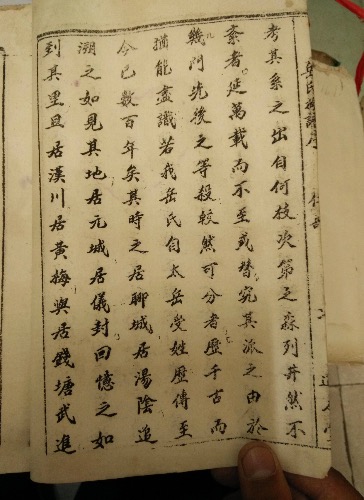 考其系之出自何枝次第之森列井然不
紊者延萬載而不至或替究其派之由於
幾門先後之等殺較然可分者歷千古而
猶能盡識若我岳氏自太岳受姓歷傳至
今已數百年矣其時之居聊城居湯陰追
溯之如見其地居元城居儀封回憶之如
到其里且居漢川居黃梅與居錢塘武進